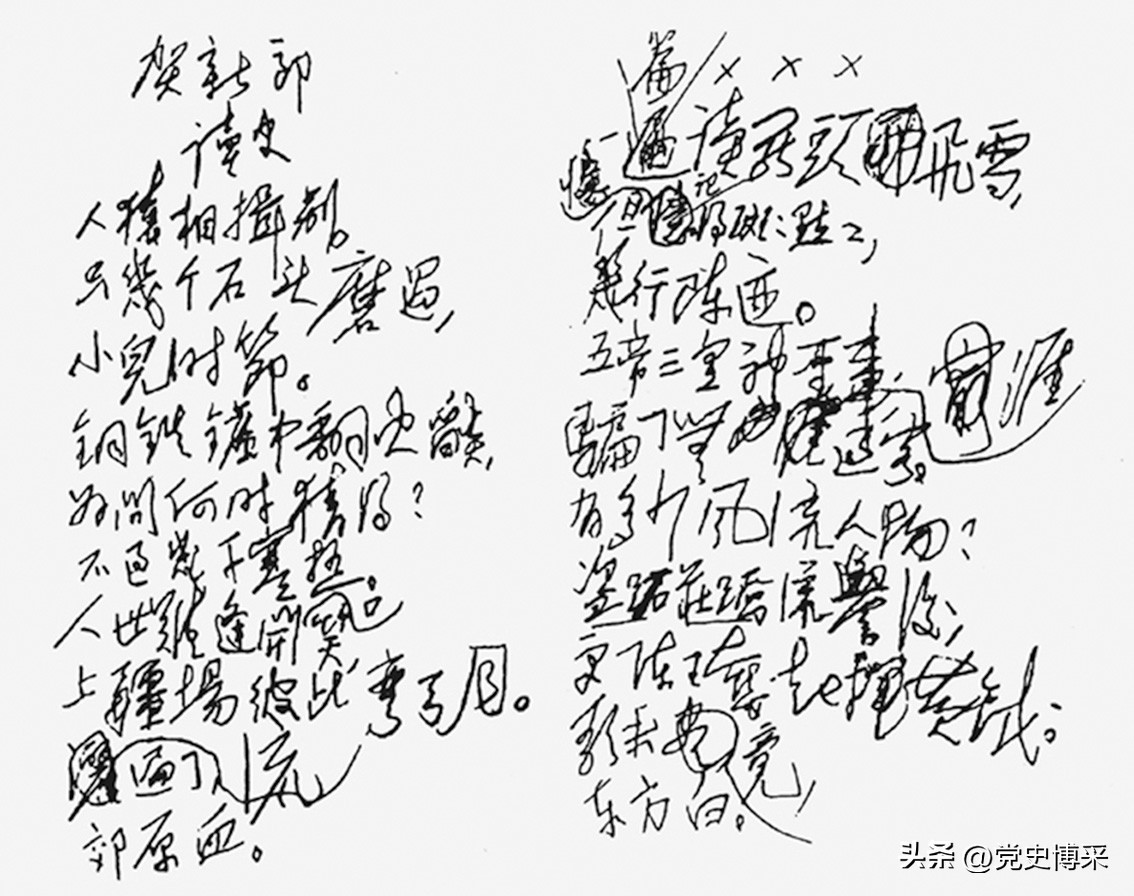 贺新郎
读史
人猿相揖别。
只幾个石头磨过,
小兒时節。
铜铁鑪中翻火燄,
为问何时猜得?
不过幾千寒热。
人世難逢開口笑,
上疆場彼此彎弓月。
流遍了,
郊原血。
× × ×
一篇读罢頭飛雪,
但记得斑:點〻,
幾行陈迹。
五帝三皇神聖事,
騙了無涯过客。
有多少风流人物?
盗跖莊蹻流譽後,
更陈王奮起揮黄钺。
歌未竟,
东方白。
头条 @党史博采